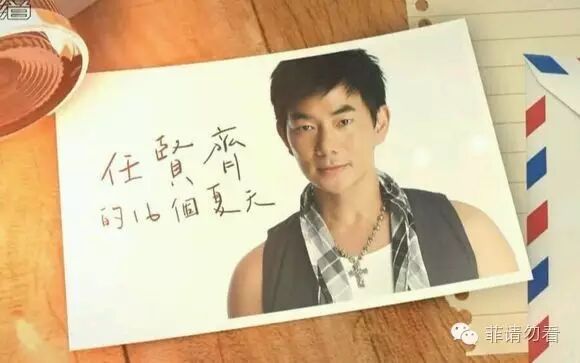 任賢齊
的16個夏天
菲请勿看